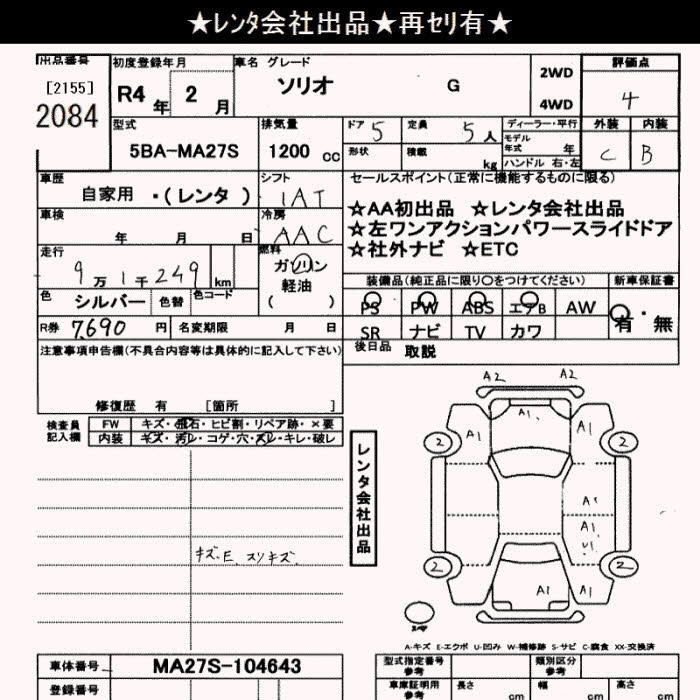 ★ﾚﾝﾀ会社出品★再ｾﾘ有★
出品番号 初度登録年月 車名 グレード 評価点
[2155] 2084 R4年 2月 ソリオ G 2WD 4WD 4
型式 排気量 ドア 5 定員 5人 ディーラー・平行 外装 内装
5BA-MA27S 1200 cc 形状 積載 kg モデル年式 年 C B
ハンドル 右・左
車歴 シフト セールスポイント(正常に機能するものに限る)
自家用 ・(レンタ ) IAT
☆AA初出品 ☆レンタ会社出品
車検 年 月 日 冷房 AAC
☆左ワンアクションパワースライドドア
☆社外ナビ ☆ETC
走行 9万1千249 km 燃料 ガソリン 軽油 ( )
装備品(純正品に限り○をつけてください) 新車保証書
色 シルバー 色替 色コード
PS PW ABS エアB AW 有・無
R券 7,690 円 名変期限 月 日
SR ナビ TV カワ
注意事項申告欄(不具合内容等は具体的に記入して下さい)
後日品 取説
修復歴 有 [箇所 ]
検査員記入欄 FW キズ・飛石・ヒビ割・リペア跡・×要
内装 キズ・汚レ・コゲ・穴・スレ・キレ・破レ
レンタ会社出品
A2 A2
A1 A1 A1
2 2
A1
A1
U1
キズ.E スリキズ
2 2
A1 A1
A-キズ E-エクボ U-凹み W-補修跡 S-サビ C-腐食 XX-交換済
車体番号 MA27S-104643 型式指定番号 参考 類別区分 参考
登録番号 車庫証明用 参考 長さ cm 幅 cm 高さ cm